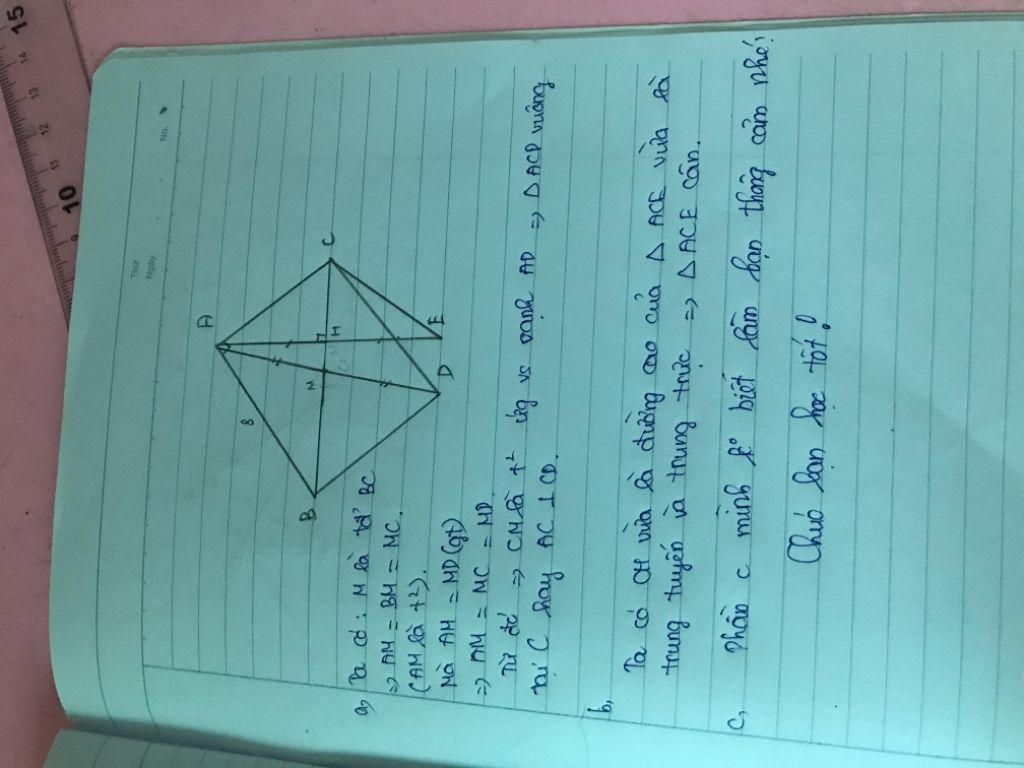 Thứ
Ngày
No.
15
14
13
12
11
10
9
A
8
M
H
B
C
D
E
a, Ta có: M là tđ' BC
=> AM = BM = MC.
(AM là t²).
Mà AM = MD (gt)
=> AM = MC = MD.
Từ đó => CM là t² ứg vs cạnh AD => Δ ACD vuông
tại C hay AC ⊥ CD.
b,
Ta có CH vừa là đường cao của Δ ACE vừa là
trung tuyến và trung trực => Δ ACE cân.
c, Phần c mình k° biết làm bạn thông cảm nhé!
Chúc bạn học tốt!